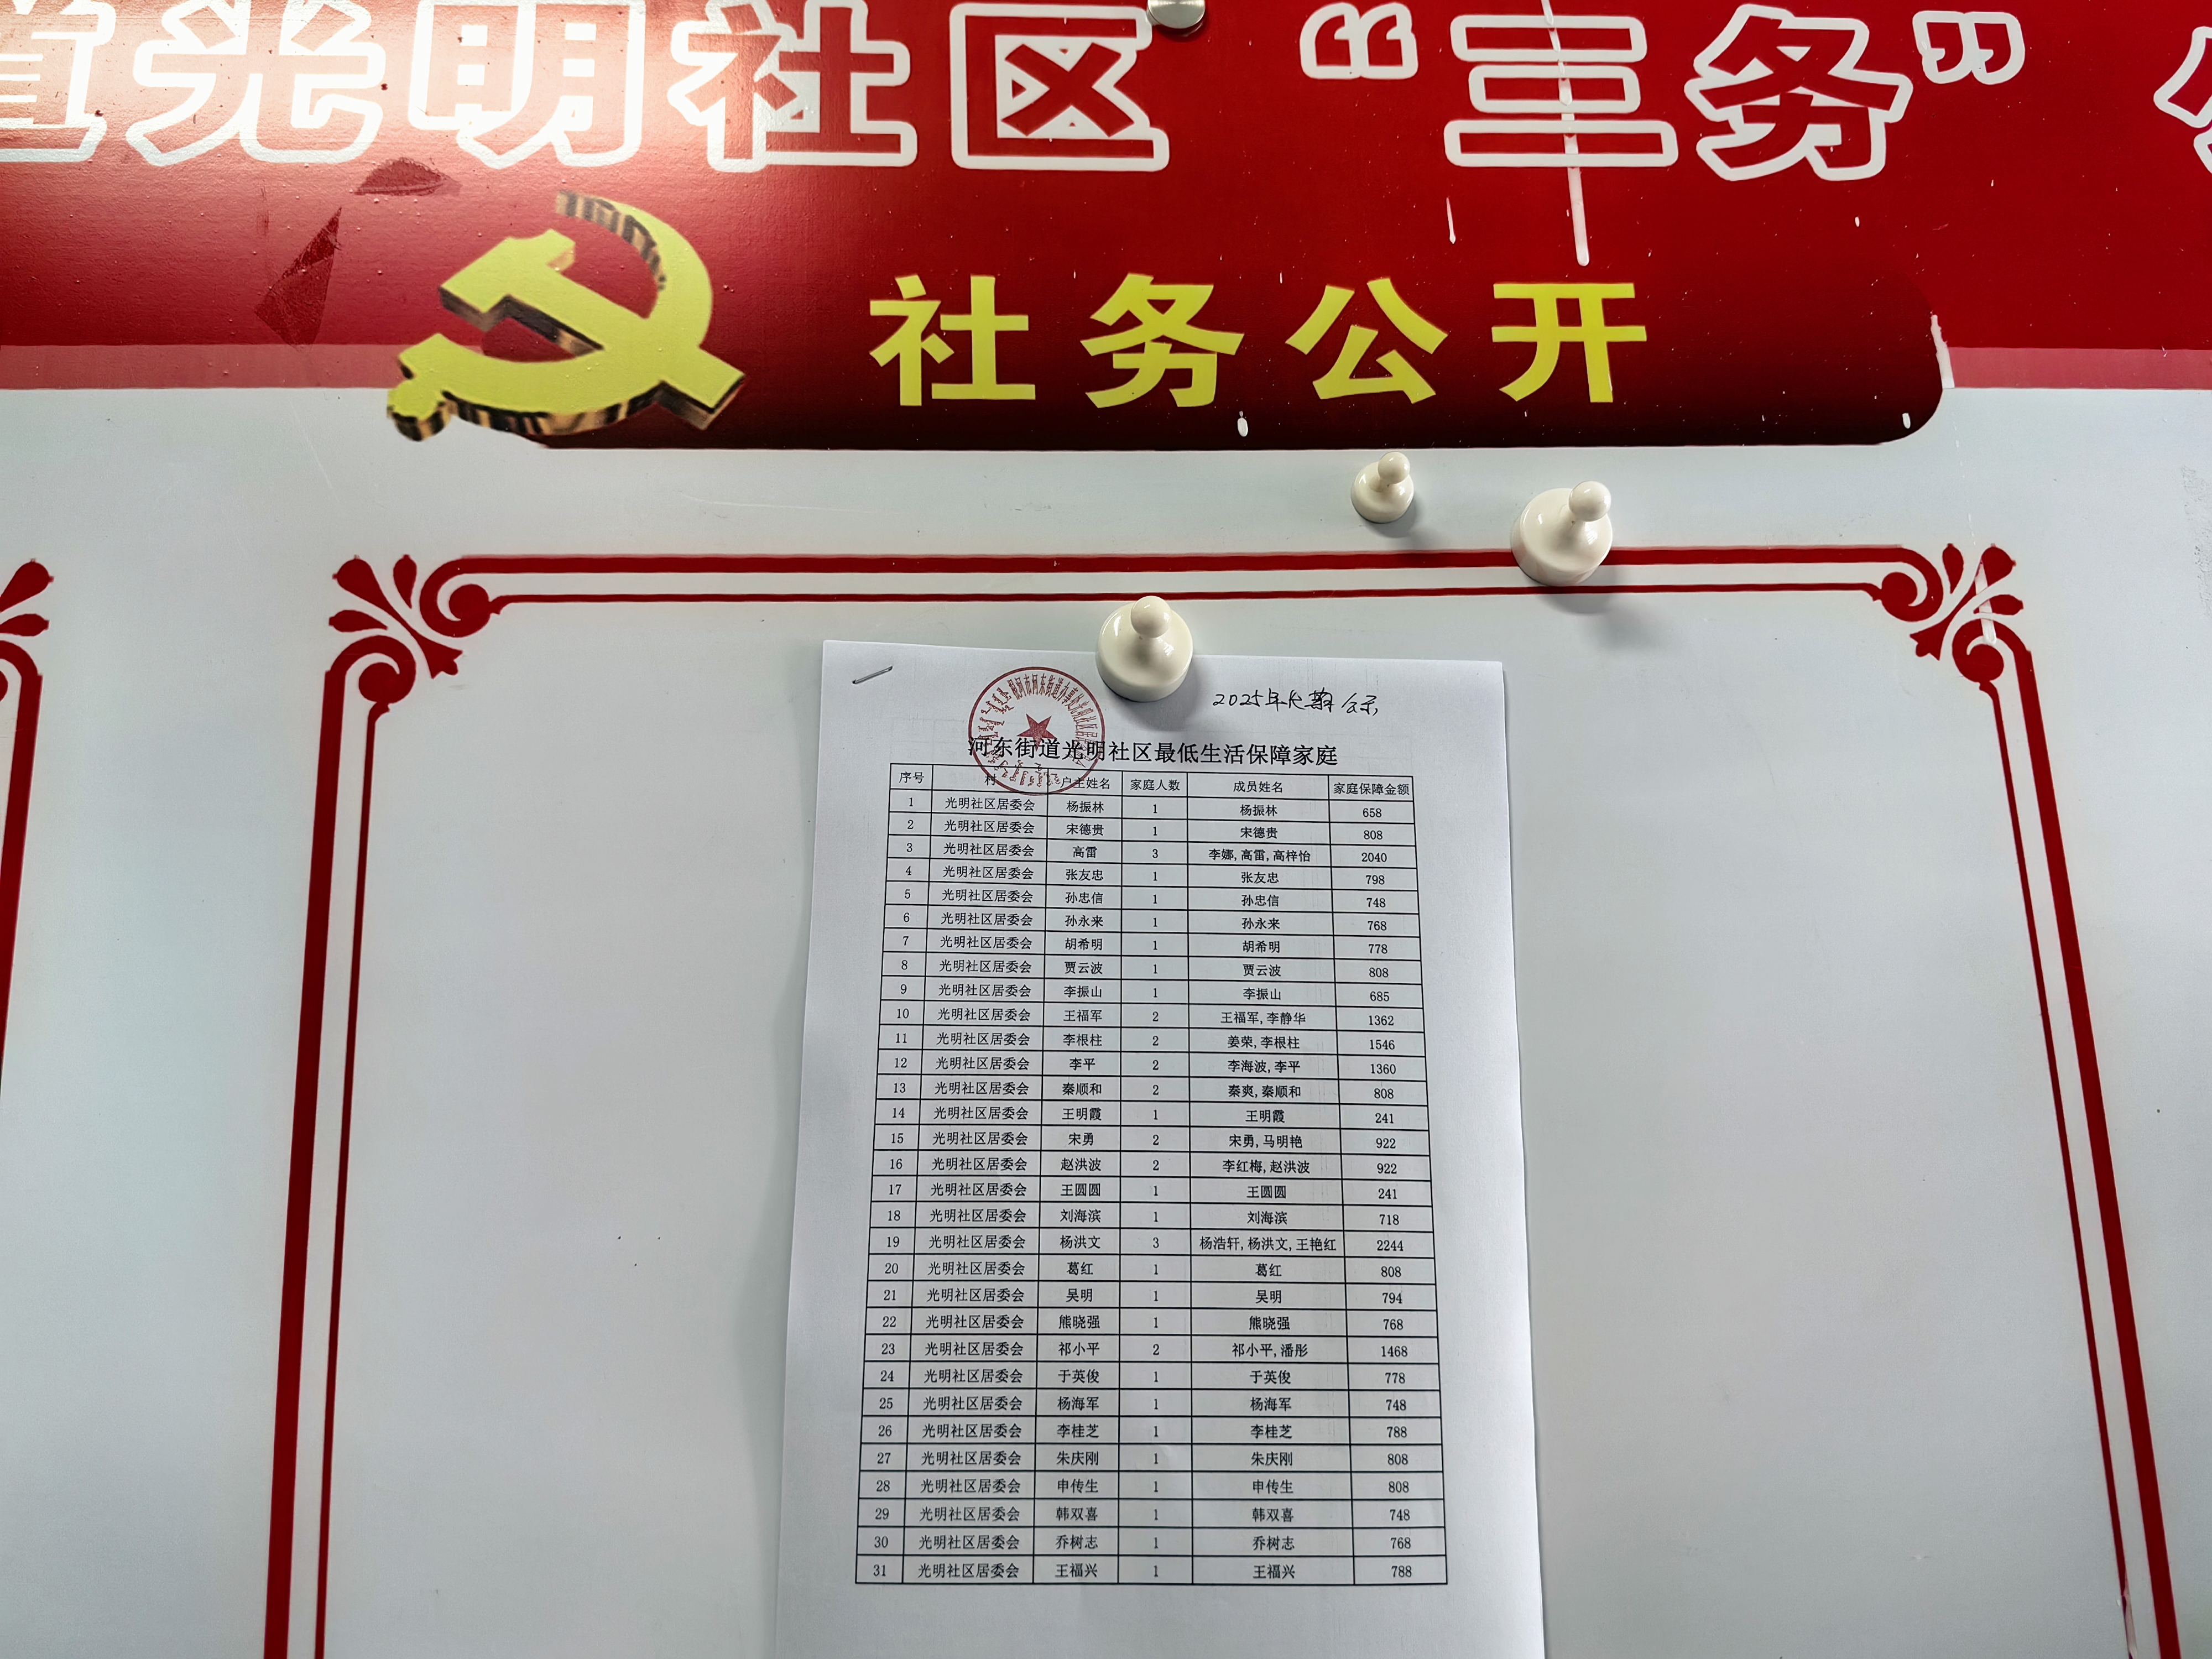 道光明社区“三务”
社务公开
2025年长期公示
河东街道光明社区最低生活保障家庭
序号 村 户主姓名 家庭人数 成员姓名 家庭保障金额
1 光明社区居委会 杨振林 1 杨振林 658
2 光明社区居委会 宋德贵 1 宋德贵 808
3 光明社区居委会 高雷 3 李娜,高雷,高梓怡 2040
4 光明社区居委会 张友忠 1 张友忠 798
5 光明社区居委会 孙忠信 1 孙忠信 748
6 光明社区居委会 孙永来 1 孙永来 768
7 光明社区居委会 胡希明 1 胡希明 778
8 光明社区居委会 贾云波 1 贾云波 808
9 光明社区居委会 李振山 1 李振山 685
10 光明社区居委会 王福军 2 王福军,李静华 1362
11 光明社区居委会 李根柱 2 姜荣,李根柱 1546
12 光明社区居委会 李平 2 李海波,李平 1360
13 光明社区居委会 秦顺和 2 秦爽,秦顺和 808
14 光明社区居委会 王明霞 1 王明霞 241
15 光明社区居委会 宋勇 2 宋勇,马明艳 922
16 光明社区居委会 赵洪波 2 李红梅,赵洪波 922
17 光明社区居委会 王圆圆 1 王圆圆 241
18 光明社区居委会 刘海滨 1 刘海滨 718
19 光明社区居委会 杨洪文 3 杨浩轩,杨洪文,王艳红 2244
20 光明社区居委会 葛红 1 葛红 808
21 光明社区居委会 吴明 1 吴明 794
22 光明社区居委会 熊晓强 1 熊晓强 768
23 光明社区居委会 祁小平 2 祁小平,潘彤 1468
24 光明社区居委会 于英俊 1 于英俊 778
25 光明社区居委会 杨海军 1 杨海军 748
26 光明社区居委会 李桂芝 1 李桂芝 788
27 光明社区居委会 朱庆刚 1 朱庆刚 808
28 光明社区居委会 申传生 1 申传生 808
29 光明社区居委会 韩双喜 1 韩双喜 748
30 光明社区居委会 乔树志 1 乔树志 768
31 光明社区居委会 王福兴 1 王福兴 788